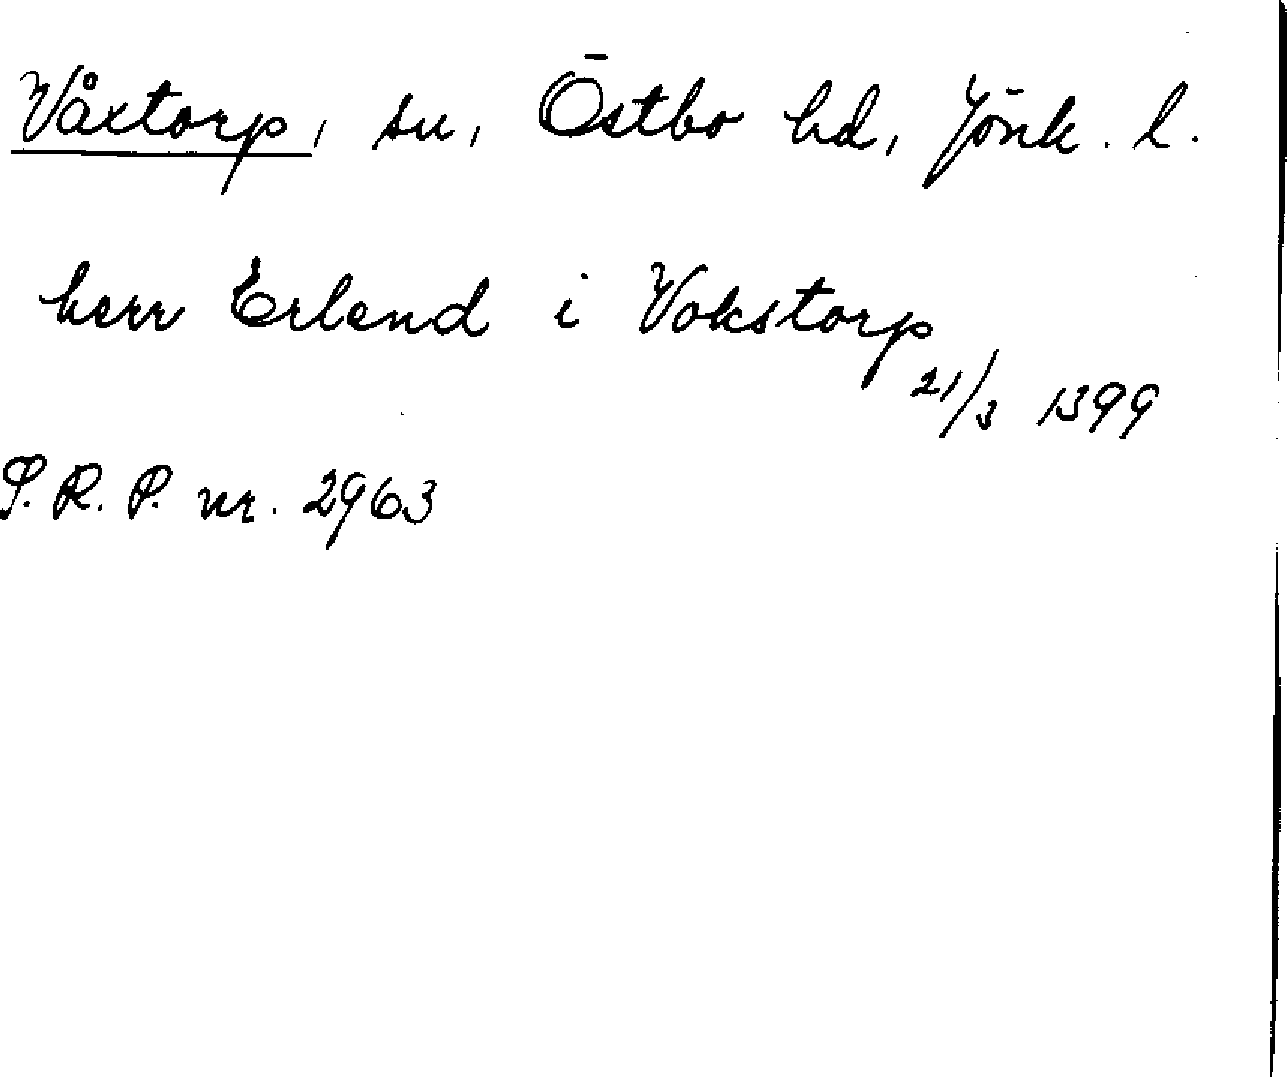 Våxtorp, sn, Östbo hd, Jönk. l.
herr Erlend i Vokstorp
21/3 1399
S.R.P. nr. 2963